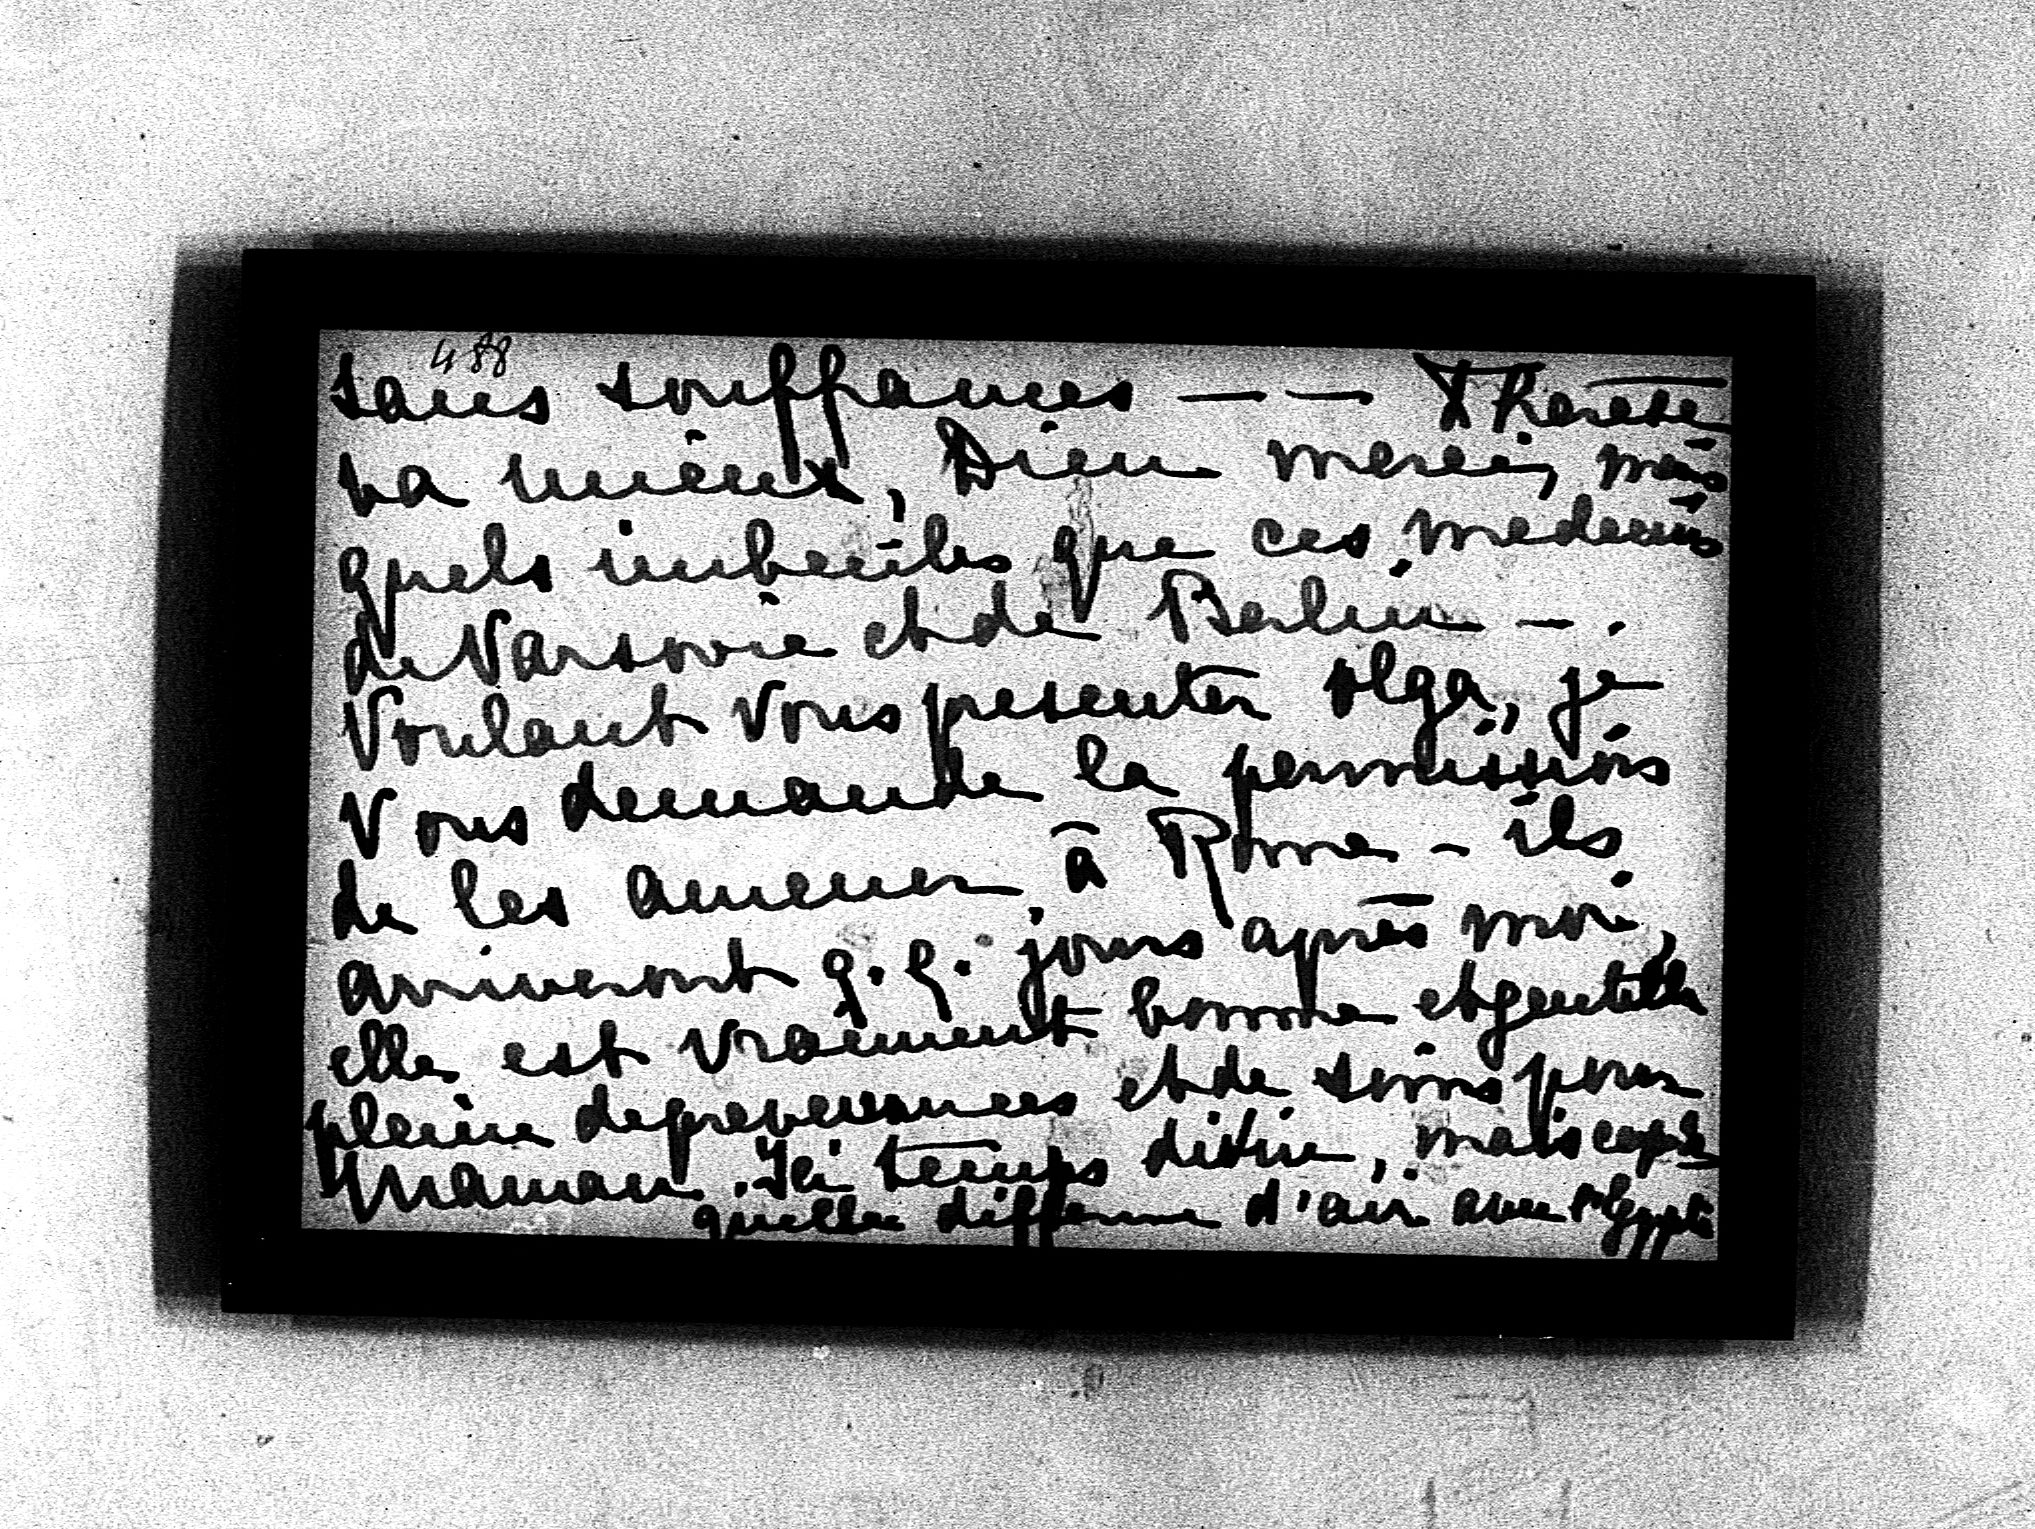 488
sans souffrances — — Thérèse
va mieux, Dieu merci, mais
quels imbeciles que ces medecins
de Varsovie et de Berlin — .
Voulant vous presenter Olga, je
vous demande la permission
de les amener à Rome - ils
arriveront q.q. jours après moi,
elle est vraiment bonne et gentille
pleine de prevenances et de soins pour
Maman. Ici temps divin, mais
quelle difference d'air avec l'Egypte